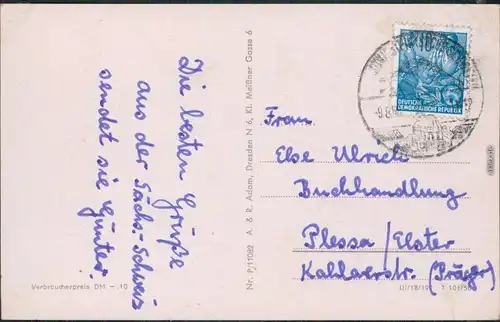 Die besten Grüße
aus der Sächs. Schweiz
sendet sie Günter.
Verbraucherpreis DM -.10
Nr. Pj11082 A. & R. Adam, Dresden N 6, Kl. Meißner Gasse 6
DEUTSCHE
DEMOKRATISCHE REPUBLIK
Frau
Else Ulrich
Buchhandlung
Plessa/Elster
(Präger)
III/18/197